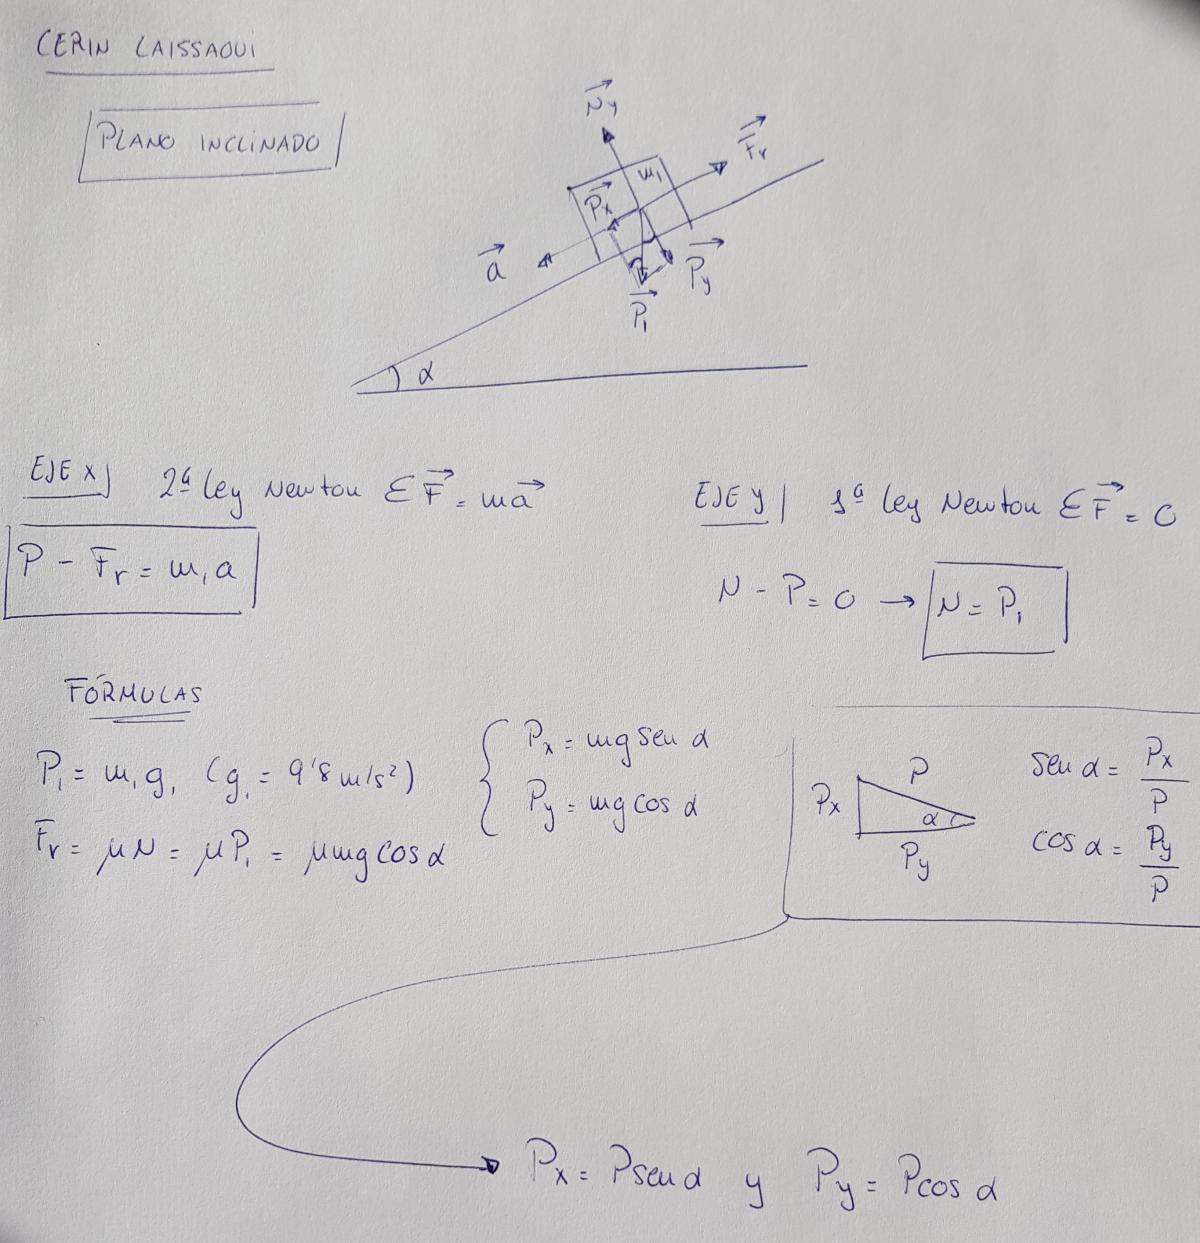 CERIN LAISSAOUI
PLANO INCLINADO
Ny
Fr
m₁
Px
a
Py
P₁
α
EJE X 2ª ley Newton ΣF = ma
P - Fr = m₁a
EJE y 1ª ley Newton ΣF = 0
N - P = 0 → N = P₁
FÓRMULAS
P₁ = m₁g, (g = 9'8 m/s²)
Fr = μN = μP₁ = μmg cos α
Px = mg sen α
Py = mg cos α
P
Px
α
Py
sen α = Px/P
cos α = Py/P
Px = P sen α y Py = P cos α